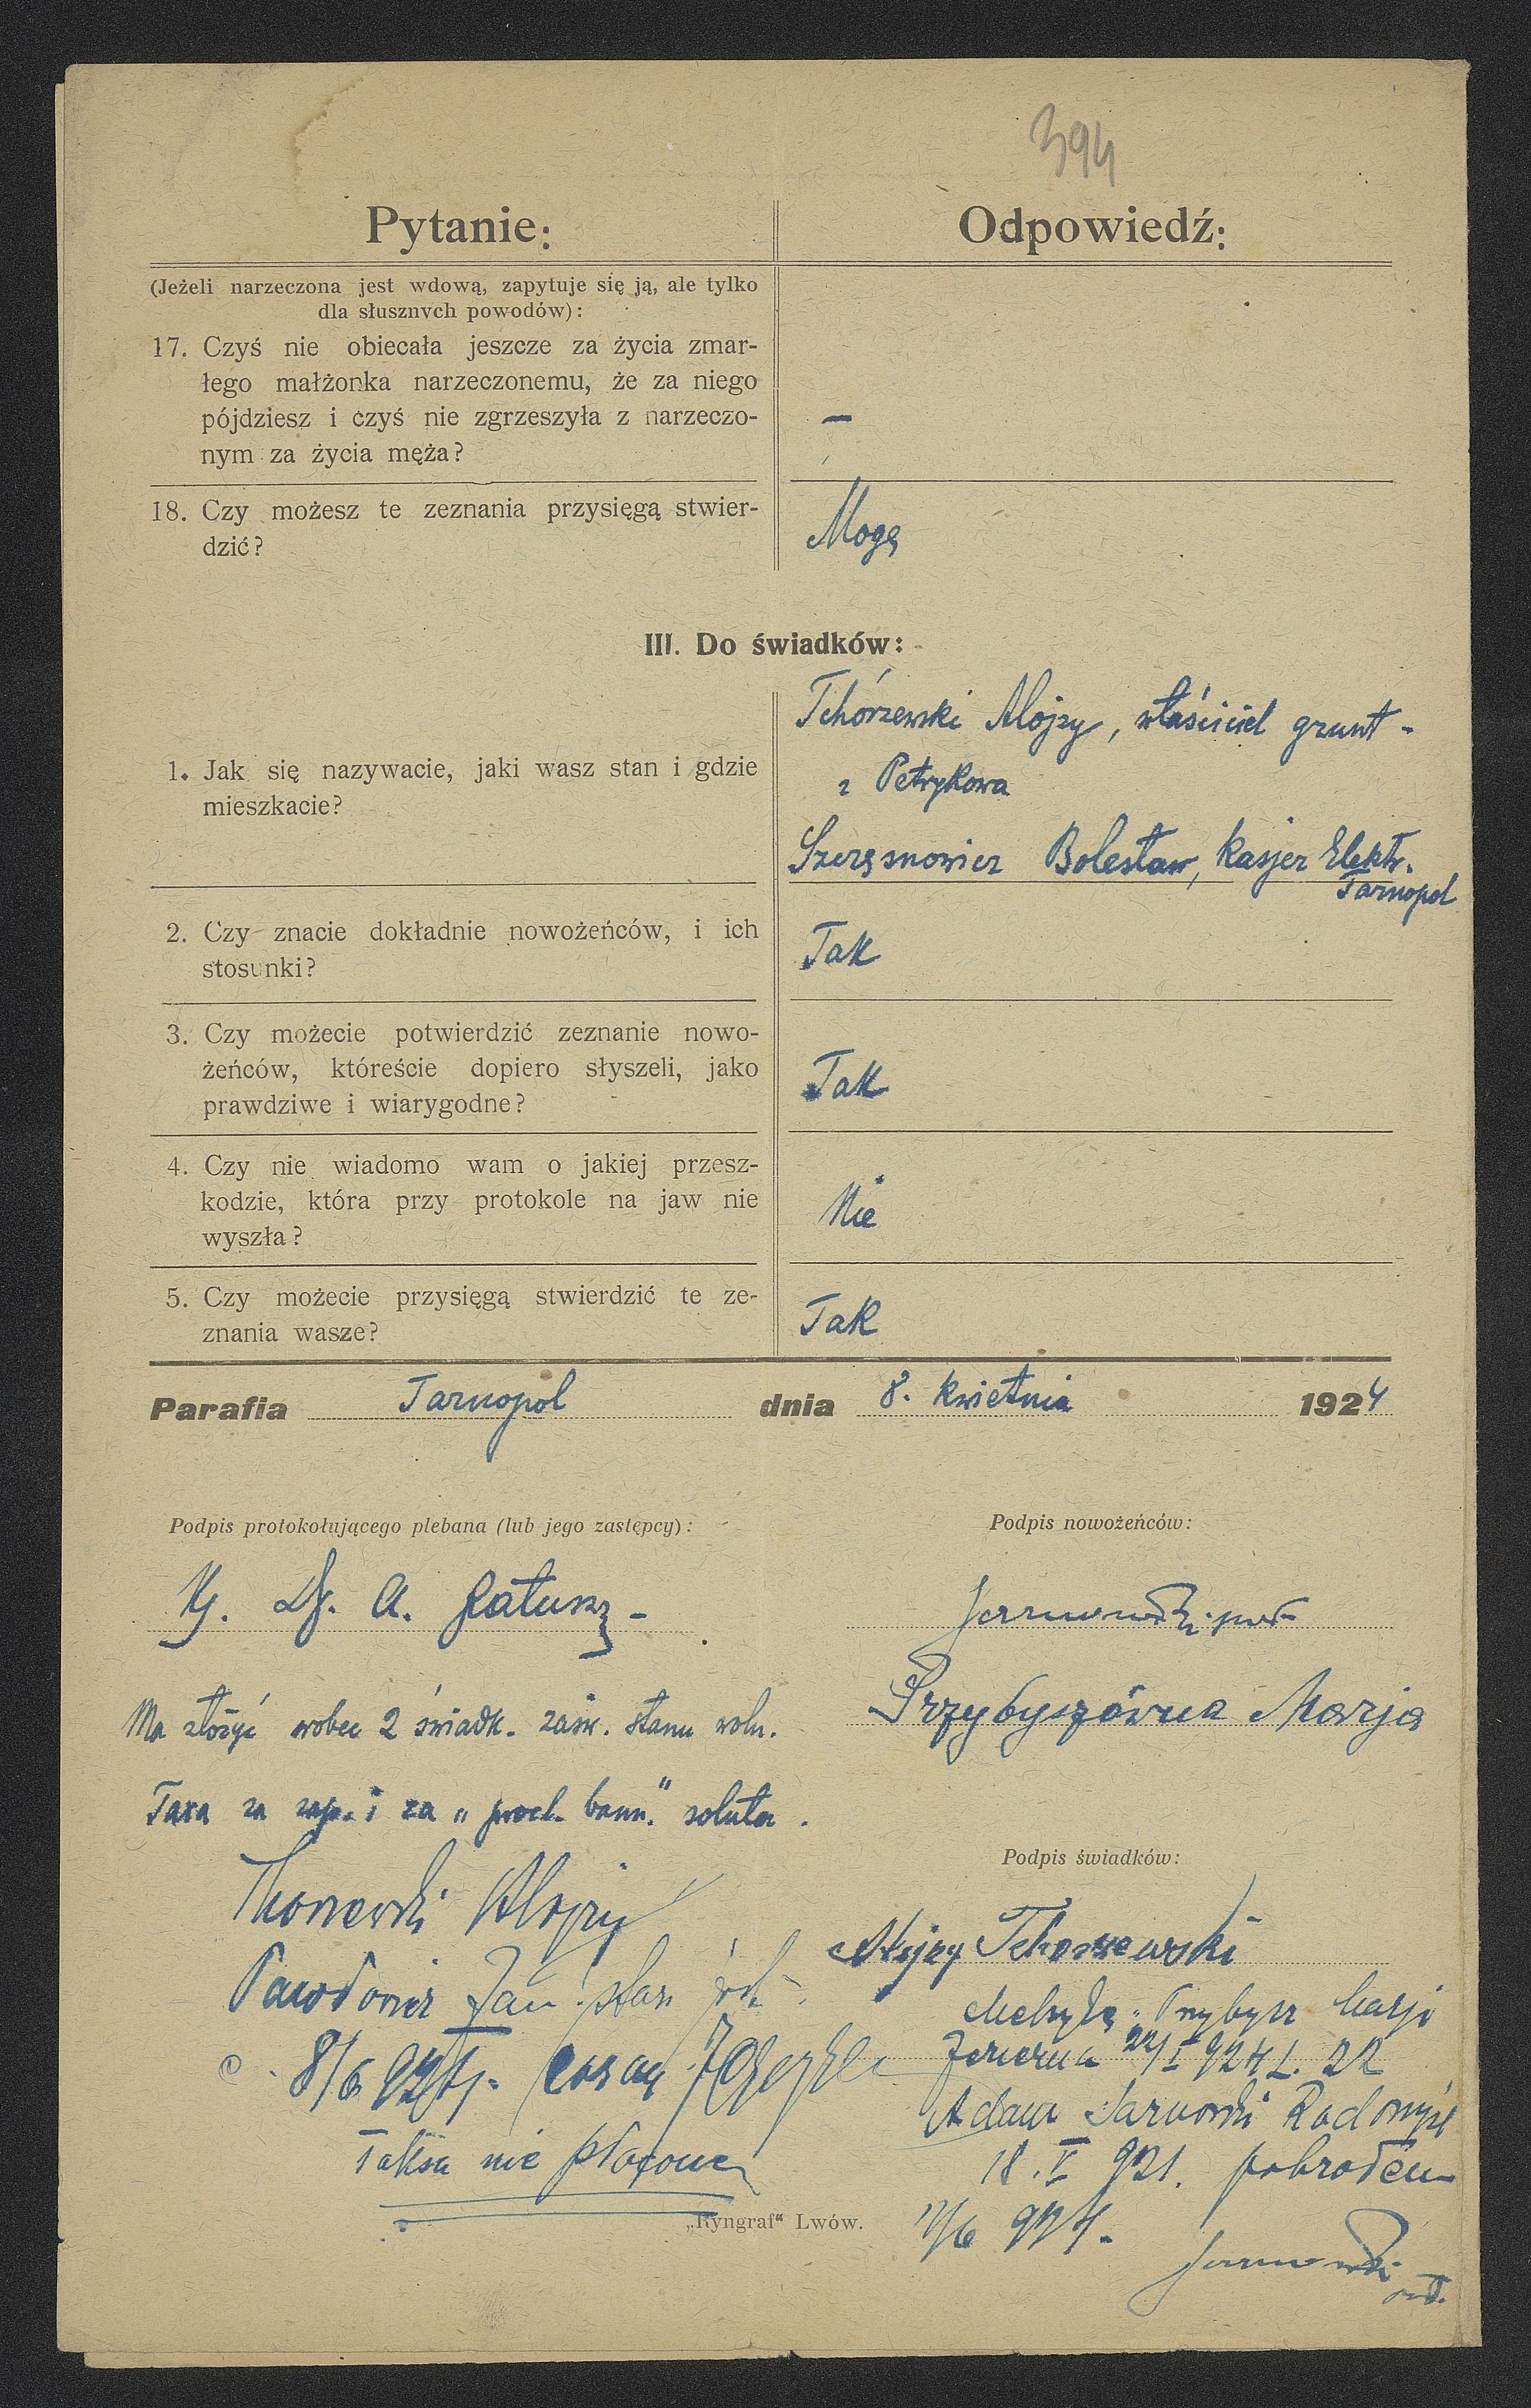 394
Pytanie:
Odpowiedź:
(Jeżeli narzeczona jest wdową, zapytuje się ją, ale tylko
dla słusznych powodów):
17. Czyś nie obiecała jeszcze za życia zmar-
łego małżonka narzeczonemu, że za niego
pójdziesz i czyś nie zgrzeszyła z narzeczo-
nym za życia męża?
–
18. Czy możesz te zeznania przysięgą stwier-
dzić?
Mogę
III. Do świadków:
1. Jak się nazywacie, jaki wasz stan i gdzie
mieszkacie?
Tchórzewski Alojzy, właściciel grunt -
z Petrykowa
Szczęsnowicz Bolesław, kasjer Elektr.
Tarnopol
2. Czy znacie dokładnie nowożeńców, i ich
stosunki?
Tak
3. Czy możecie potwierdzić zeznanie nowo-
żeńców, któreście dopiero słyszeli, jako
prawdziwe i wiarygodne?
Tak
4. Czy nie wiadomo wam o jakiej przesz-
kodzie, która przy protokole na jaw nie
wyszła?
Nie
5. Czy możecie przysięgą stwierdzić te ze-
znania wasze?
Tak
Parafia Tarnopol dnia 8. kwietnia 1924
Podpis protokołującego plebana (lub jego zastępcy):
Podpis nowożeńców:
X. Dr. A. Ratusz -
Przybyszówna Marja
Ma złożyć wobec 2 świadk. zaśw. stanu woln.
Taxa za zap. i za „procl. bann." soluta.
Podpis świadków:
Alojzy
Alojzy Tchorzewski
Jan
Metryka Przybysz Marji
8/6 924
Jezierna 22/I 924 L. 22
Adam Jarnowski Radomyśl
Taksa nie płacona
18. V 921.
„Ryngraf" Lwów.
924.